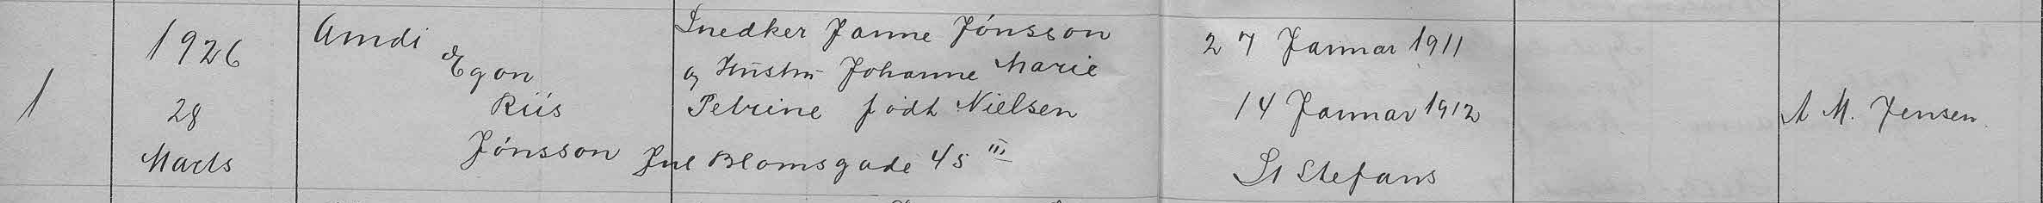 1
1926
28
Marts
Amdi
Egon
Riis
Jónsson
Snedker Janne Jónsson
og Hustru Johanne Marie
Petrine født Nielsen
Jul Blomsgade 45 III
27 Januar 1911
14 Januar 1912
St Stefans
A M. Jensen